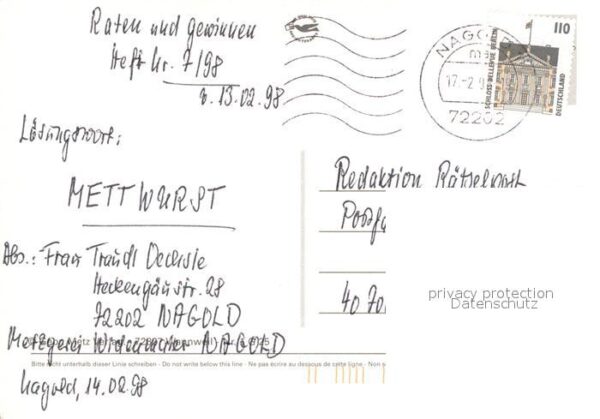 Raten und gewinnen
Heft Nr. 7/98
v. 13.02.98
Lösungswort:
METTWURST
Abs.: Frau Traudl Dechsle
Heckengäustr. 28
72202 NAGOLD
Metzgerei Widenmaier NAGOLD
Nagold, 14.02.98
Bitte nicht unterhalb dieser Linie schreiben - Do not write below this line - Ne pas écrire au dessous de cette ligne - Non s
NAGOLD
17.-2.9
72202
110
SCHLOSS BELLEVUE BERLIN
DEUTSCHLAND
Redaktion Rätselpost
Postfa
40 70
privacy protection
Datenschutz